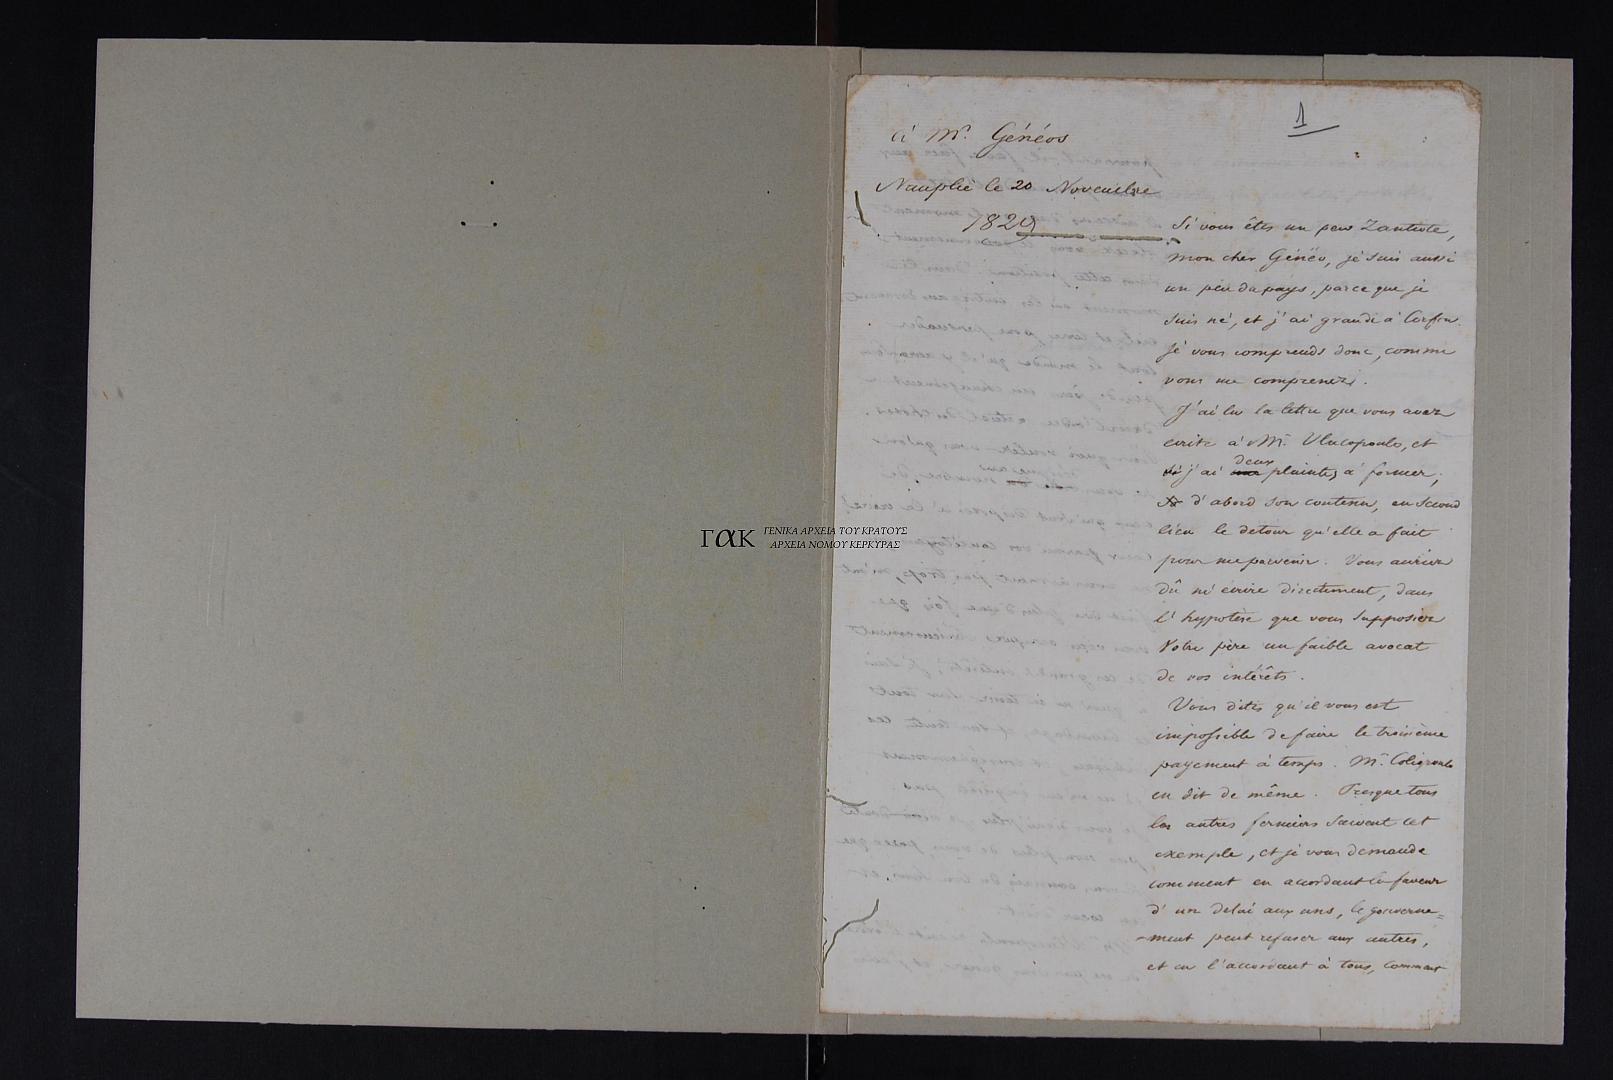 1
à Mr. Généos
Nauplie le 20 Novembre
1829
Si vous êtes un peu Zantiote,
mon cher Généo, je suis aussi
un peu du pays, parce que je
suis né, et j'ai grandi à Corfou.
Je vous comprends donc, comme
vous me comprenez.
J'ai lu la lettre que vous avez
écrite à Mr. Vlacopoulo, et
j'ai deux plaintes à former;
d'abord son contenu, en second
lieu le detour qu'elle a fait
pour me parvenir. Vous auriez
dû m'écrire directement, dans
l'hypotèse que vous supposiez
Votre père un faible avocat
de vos intérêts.
Vous dites qu'il vous est
impossible de faire le troisième
payement à temps. Mr.
en dit de même. Presque tous
les autres fermiers suivent cet
exemple, et je vous demande
comment en accordant la faveur
d'un delai aux uns, le gouverne=
-ment peut refuser aux autres,
et en l'accordant à tous, comment
ΓΑΚ ΓΕΝΙΚΑ ΑΡΧΕΙΑ ΤΟΥ ΚΡΑΤΟΥΣ
ΑΡΧΕΙΑ ΝΟΜΟΥ ΚΕΡΚΥΡΑΣ